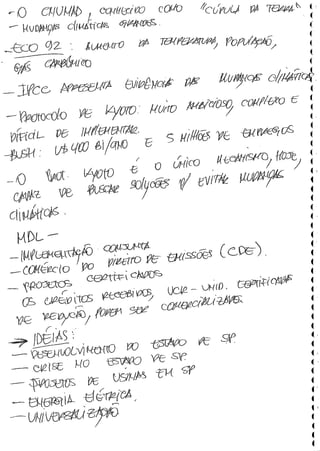 - O CNUMAD, CONHECIDO COMO "CÚPULA DA TERRA"
- MUDANÇAS CLIMÁTICAS GRANDES.
- ECO 92: AUMENTO DA TEMPERATURA, POPULAÇÃO,
GÁS CARBÔNICO
- IPCC APRESENTA EVIDÊNCIAS DAS MUDANÇAS CLIMÁTICAS
- PROTOCOLO DE KYOTO: MUITO AMBICIOSO, COMPLEXO E
DIFÍCIL DE IMPLEMENTAR.
- BUSH: U$ 400 BI/ANO E 5 MILHÕES DE EMPREGOS
- O PROT. KYOTO É O ÚNICO MECANISMO, HOJE,
CAPAZ DE BUSCAR SOLUÇÕES P/ EVITAR MUDANÇAS
CLIMÁTICAS.
MDL -
- IMPLEMENTAÇÃO CONJUNTA
- COMÉRCIO DO DIREITO DE EMISSÕES (CDE).
- PROJETOS CERTIFICADOS
OS CRÉDITOS RECEBIDOS, UCR - UNID. CERTIFICADAS
DE REDUÇÃO, PODEM SER COMERCIALIZADAS
→ IDÉIAS:
- DESENVOLVIMENTO DO ESTADO DE SP.
- CRISE NO ESTADO DE SP.
- PROJETOS DE USINAS EM SP
- ENERGIA ELÉTRICA.
- UNIVERSALIZAÇÃO